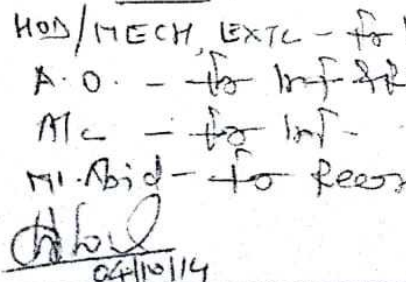 HOD/MECH, EXTC - for
A.O. - for Inf
A/c - for Inf -
Mr. Abid - for Recor
04/10/14